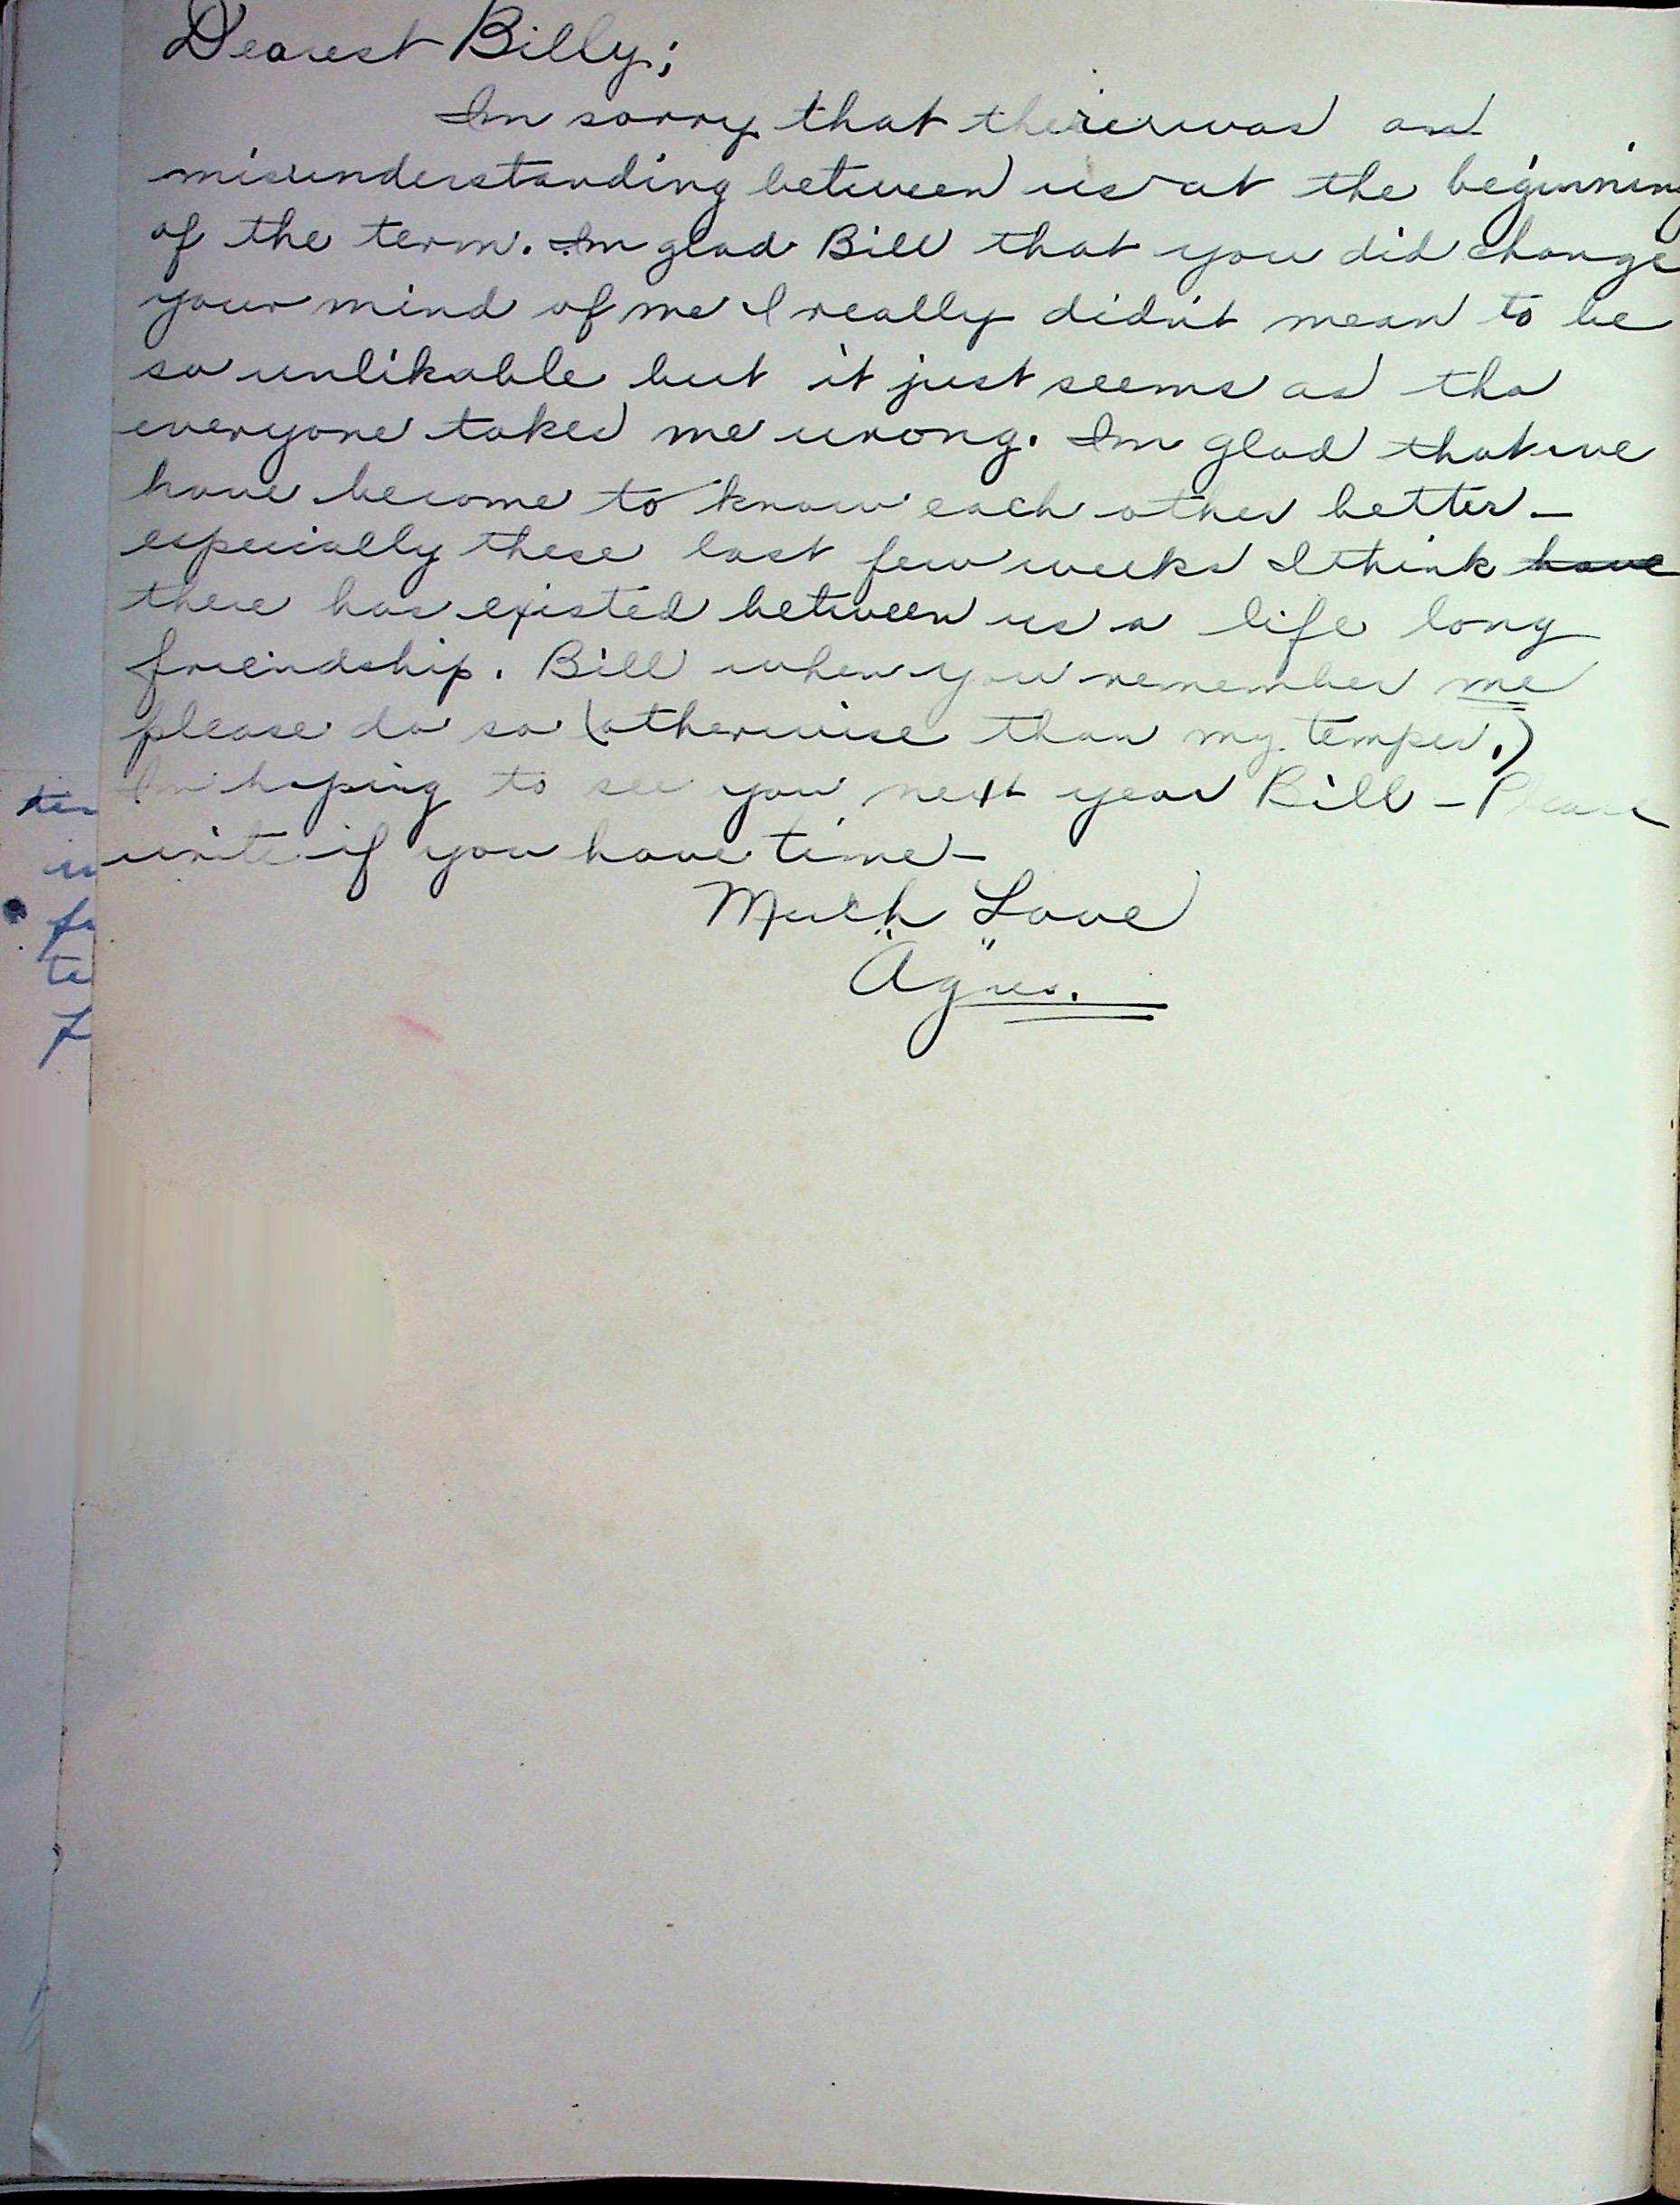 Dearest Billy;
Im sorry that there was a
misunderstanding between us at the beginning
of the term. Im glad Bill that you did change
your mind of me I really didn't mean to be
so unlikable but it just seems as tho
everyone takes me wrong. Im glad that we
have become to know each other better –
especially these last few weeks I think have
there has existed between us a life long
friendship. Bill when you remember me
please do so (otherwise than my temper.)
Im hoping to see you next year Bill – Please
write if you have time –
Much Love
"Agnes."